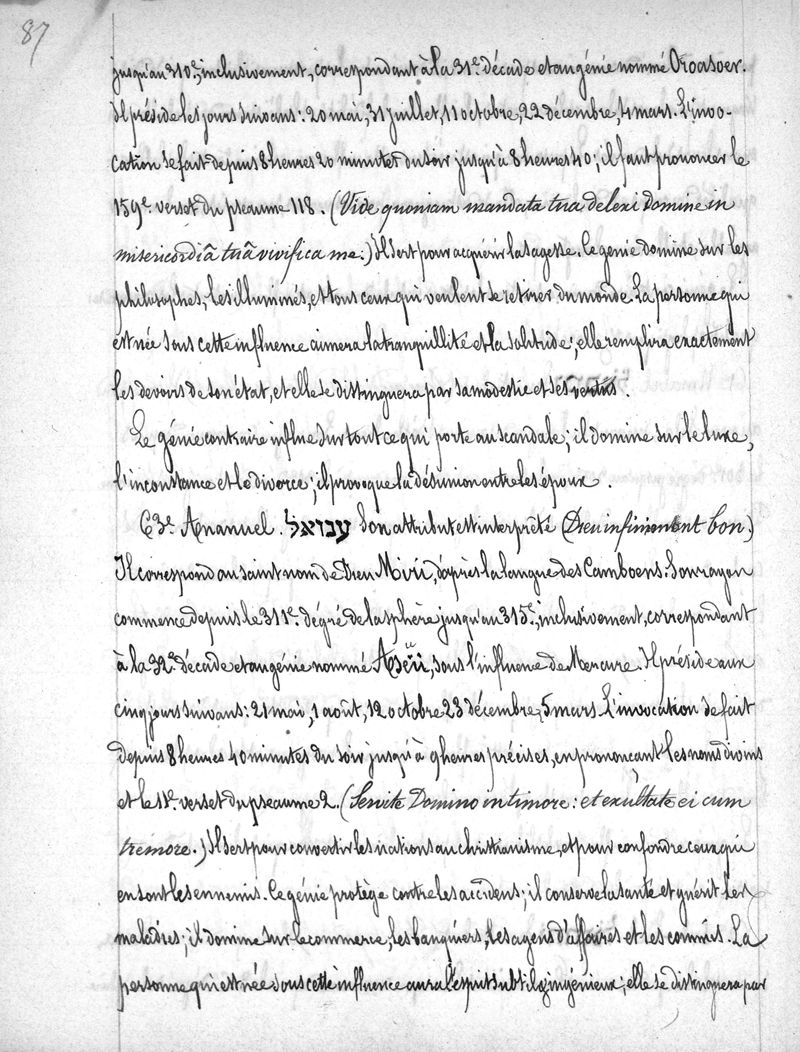 87
jusqu'au 310e, inclusivement, correspondant à la 31e décade et au génie nommé Oroasoer.
Il préside les jours suivans: 20 mai, 31 juillet, 11 octobre, 22 décembre, 4 mars. L'invo-
cation se fait depuis 8 heures 20 minutes du soir jusqu'à 8 heures 40; il faut prononcer le
159e verset du pseaume 118. (Vide quoniam mandata tua delexi domine in
misericordiâ tuâ vivifica me.) Il sert pour acquérir la sagesse. Ce génie domine sur les
philosophes, les illuminés, et tous ceux qui veulent se retirer du monde. La personne qui
est née sous cette influence aimera la tranquillité et la solitude; elle remplira exactement
les devoirs de son état, et elle se distinguera par sa modestie et ses vertus.
Le génie contraire influe sur tout ce qui porte au scandale; il domine sur le luxe,
l'inconstance et le divorce; il provoque la désunion entre les époux.
63e Ananuel. ענואל Son attribut est interprêté (Dieu infiniment bon.)
Il correspond au saint nom de Dieu Miri, d'après la langue des Camboens. Son rayon
commence depuis le 311e dégré de la sphère jusqu'au 315e, inclusivement, correspondant
à la 32e décade et au génie nommé Aseü, sous l'influence de Mercure. Il préside aux
cinq jours suivans: 21 mai, 1 août, 12 octobre 23 décembre, 5 mars. L'invocation se fait
depuis 8 heures 40 minutes du soir jusqu'à 9 heures précises, en prononcant les noms divins
et le 11e verset du pseaume 2. (Servite Domino in timore: et exultate ei cum
tremore.) Il sert pour convertir les nations au christianisme, et pour confondre ceux qui
en sont les ennemis. Ce génie protège contre les accidens; il conserve la santé et guérit les
maladies; il domine sur le commerce, les banquiers, les agens d'affaires et les commis. La
personne qui est née sous cette influence aura l'esprit subtil & ingénieux; elle se distinguera par